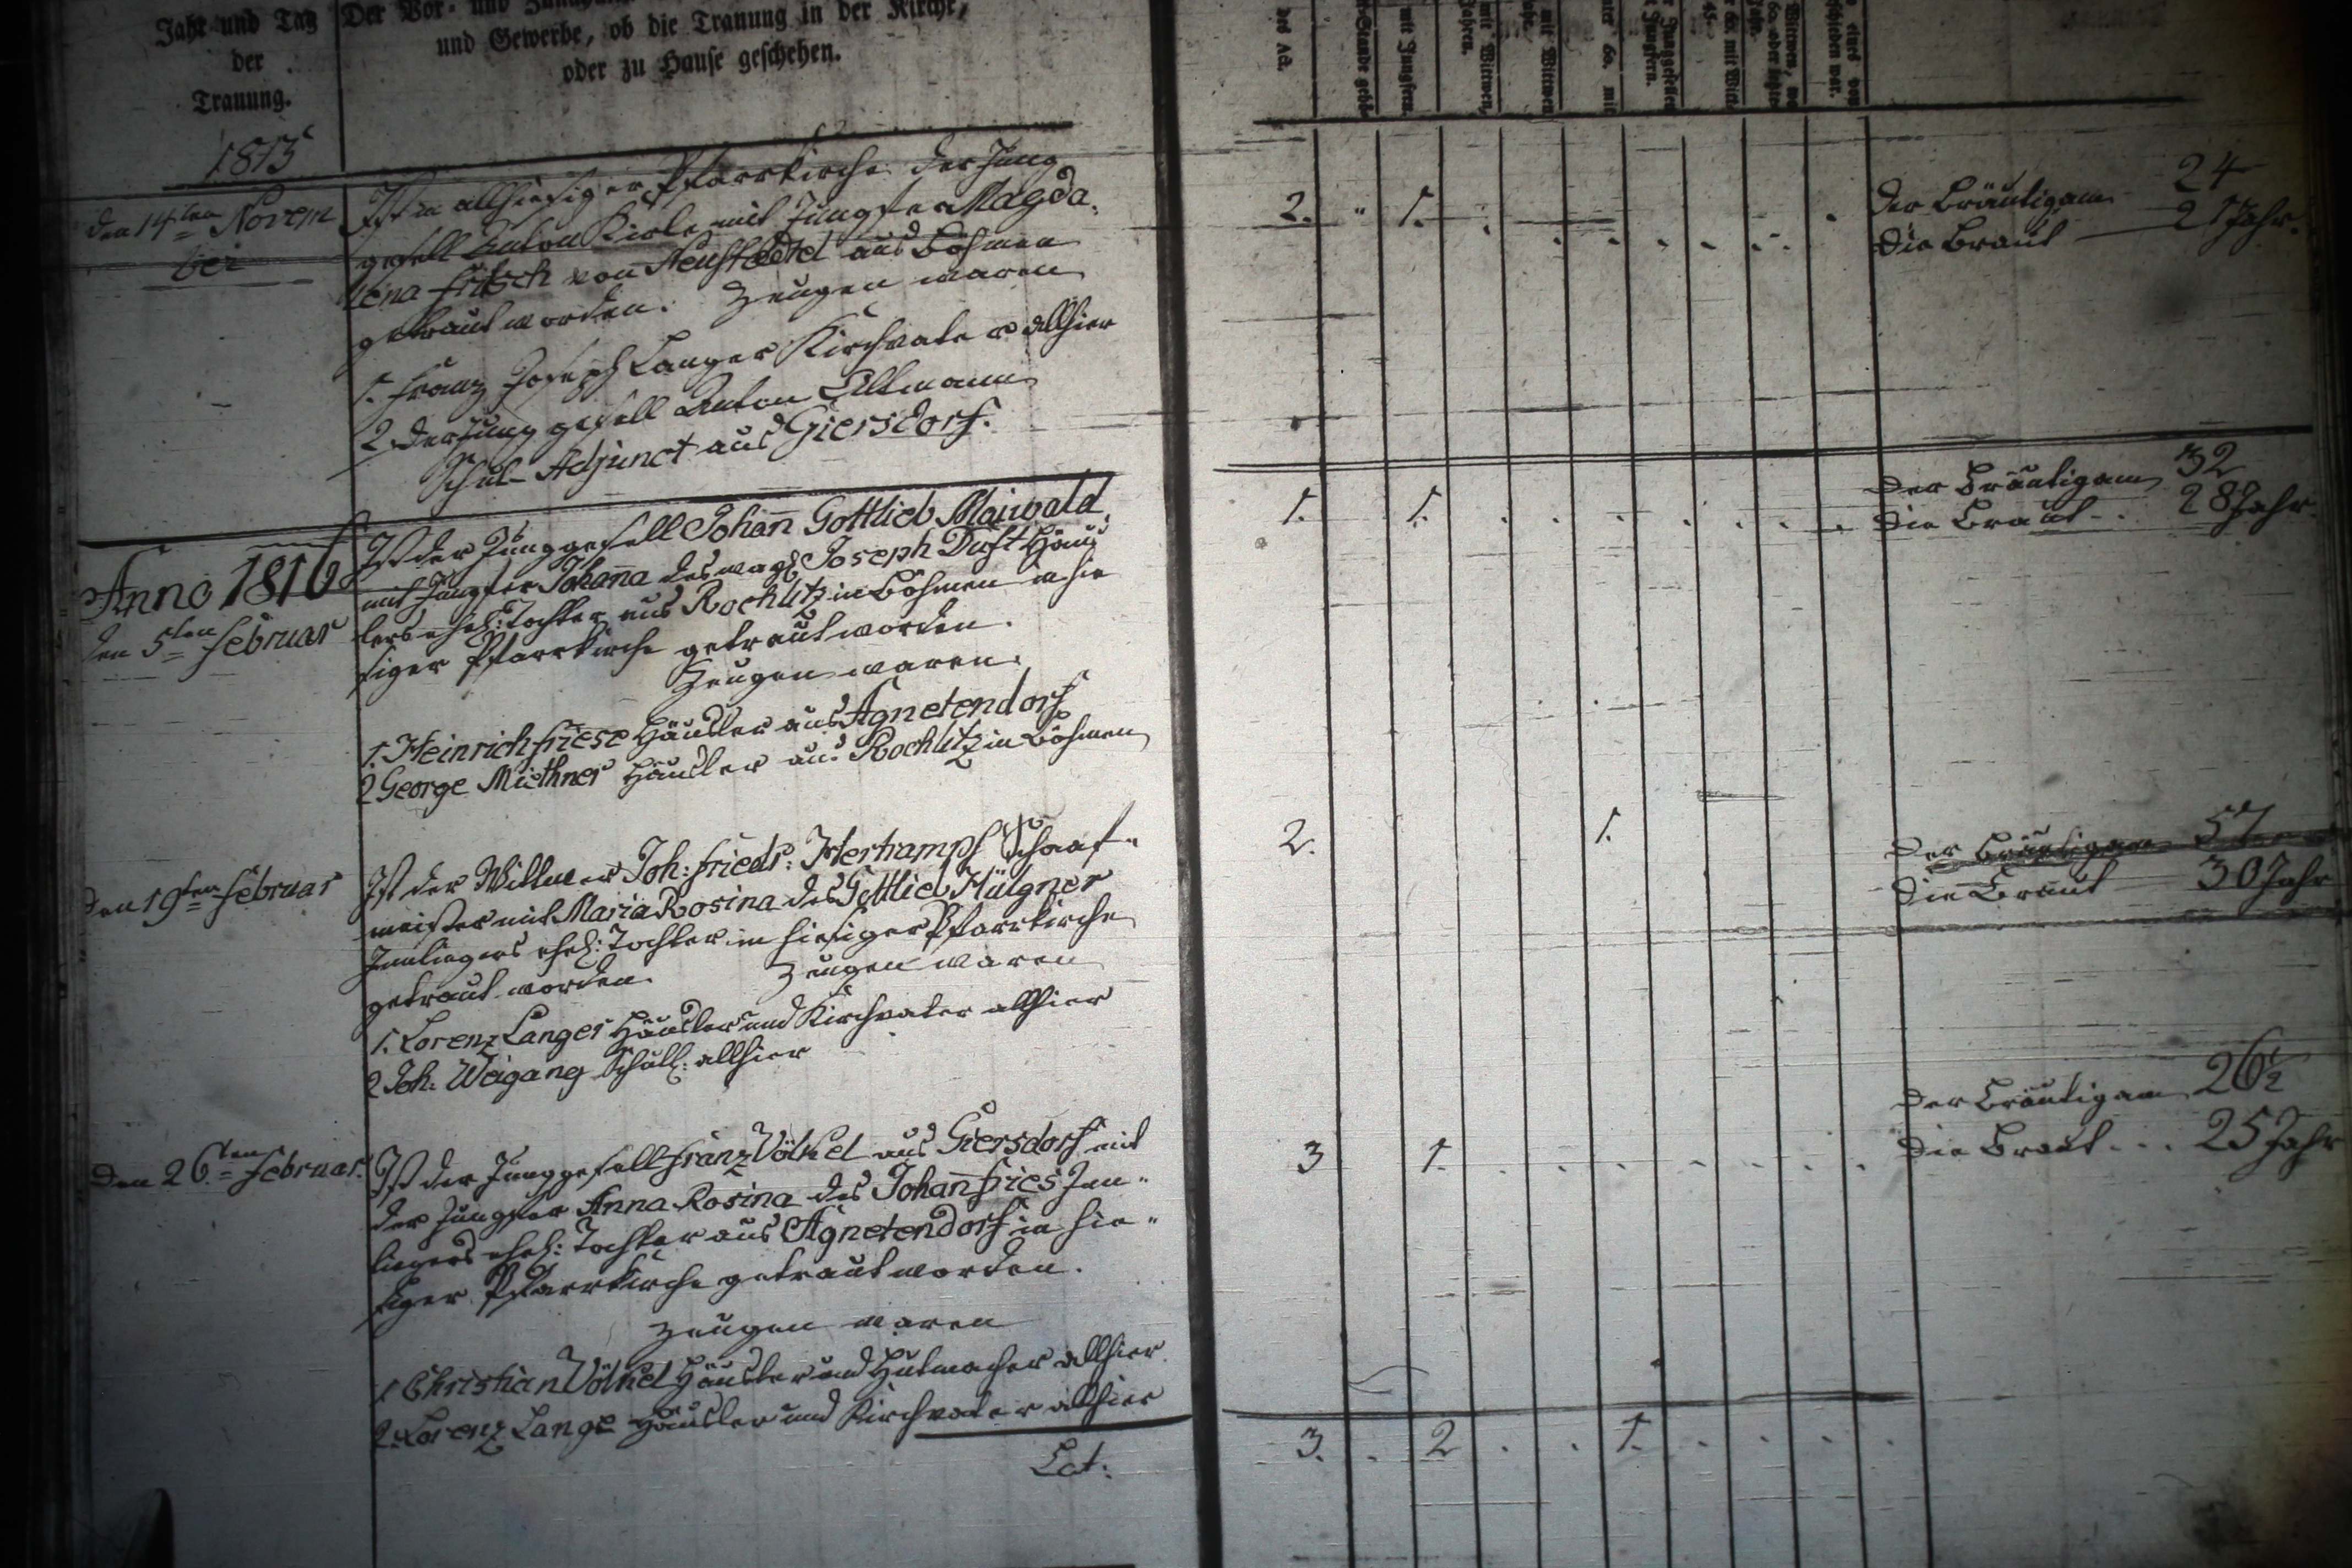 Jahr und Tag
der
Trauung.
Der Vor- und
und Gewerbe, ob die Trauung in der Kirche,
oder zu Hause geschehen.
1815
den 14ten Novem
ber
Ist in allhiesiger Pfarrkirche der Jung
gesell Anton mit Jungfer Magda.
lena Fritsch von Neustädtel aus Böhmen
getraut worden. Zeugen waren
1. Franz Joseph Langer Kirchvater allhier
2 der Junggesell Anton Altmann
Schul-Adjunct aus Giersdorf.
2. " 1.
Der Bräutigam 24
Die Braut 21 Jahr.
Anno 1816
den 5ten Februar
Ist der Junggesell Johann Gottlieb Maiwald
mit Jungfer Johanna des Joseph Duft Häus
lers ehel: Tochter aus Rochlitz in Böhmen in hie
siger Pfarrkirche getraut worden.
Zeugen waren.
1. Heinrich Friese Häusler aus Agnetendorf
2 George Miethner Häusler aus Rochlitz in Böhmen
1. 1.
Der Bräutigam 32
Die Braut .. 28 Jahr
den 19ten Februar
Ist der Wittwer Joh: Friedr: Hertrampf Schaaf-
meister mit Maria Rosina des Gottlieb Hülgner
Inliegers ehel: Tochter in hiesiger Pfarrkirche
getraut worden. Zeugen waren
1. Lorenz Langer Häusler und Kirchvater allhier
2 Joh: Weigang Schull: allhier
2. 1.
Der Bräutigam 57
Die Braut 30 Jahr
den 26ten Februar.
Ist der Junggesell Franz Völkel aus Giersdorf mit
der Jungfer Anna Rosina des Johann Fries Inn-
liegers ehel: Tochter aus Agnetendorf in hie-
siger Pfarrkirche getraut worden.
Zeugen waren
1 Christian Völkel Häusler und Hutmacher allhier
2. Lorenz Lange Häusler und Kirchvater allhier
3 1.
Der Bräutigam 26½
Die Braut ... 25 Jahr
Lat:
3. . 2 . . 1.